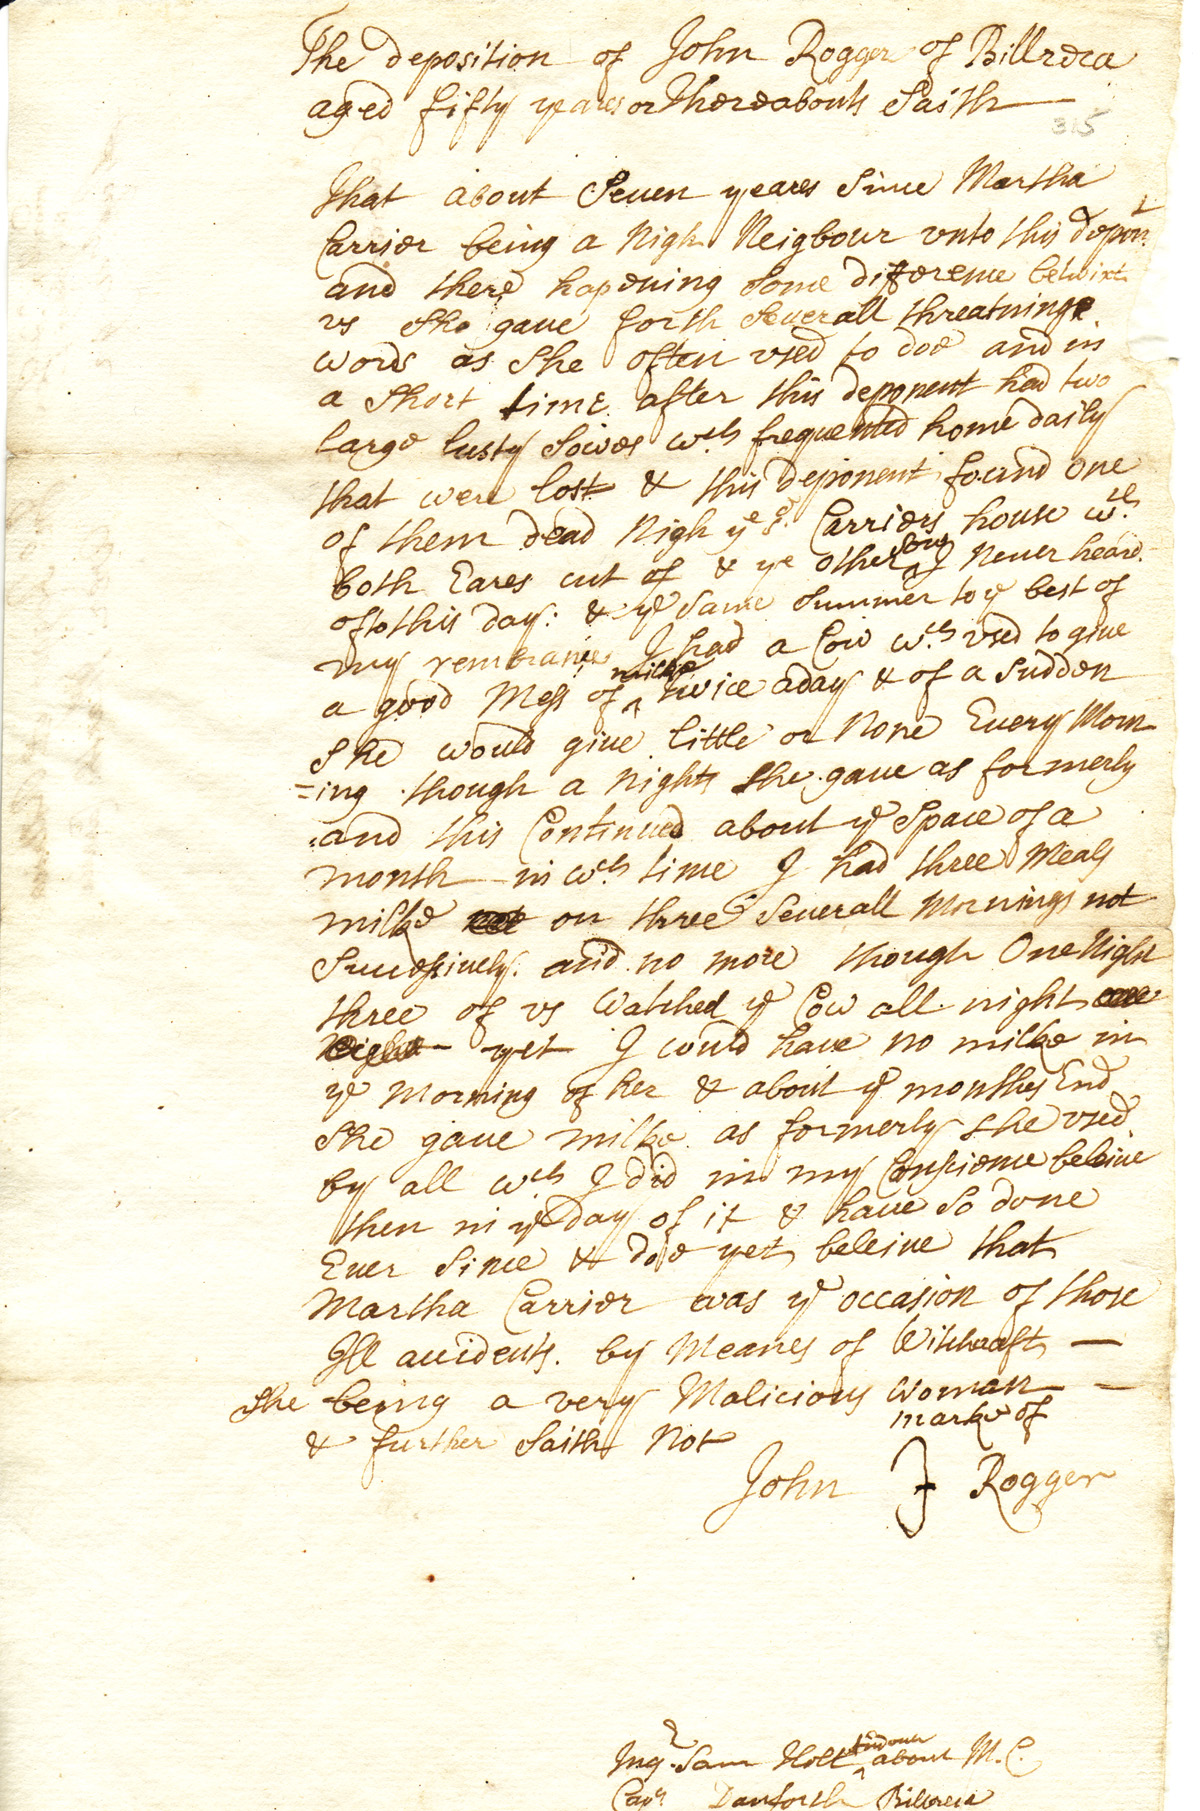 The deposition of John Rogger of Billreca
aged fifty yeares or Thereabouts Saith
315
That about Seuen yeares Since Martha
Carrier being a Nigh Neigbour vnto this depont
and there hapening Some difference betwixt
vs She gaue forth Seuerall threatninge
words as She often vsed to doe and in
a Short time after this deponent had two
large lusty Sowes wch frequented home daily
that were lost & this deponent found one
of them dead Nigh ye sd Carriers house wth
both Eares cut of & ye other Sow I Neuer heard
of to this day: & ye Same Summer to ye best of
my rembrance I had a Cow wch vsed to giue
a good Mess of milke twice a day & of a Sudden
She would giue little or None Euery Morn
=ing though a Nights She gaue as formerly
and this Continued about ye Space of a
month in wch time I had three Meals
milke on three Seuerall Mornings not
Succesiuely and no more though One Night
three of vs Watched ye Cow all night
Night yet I could haue no milke in
ye Morning of her & about ye monthes End
She gaue milke as formerly She vsed
by all wch I did in my Consience beleiue
then in ye day of it & haue So done
Euer Since & doe yet beleiue that
Martha Carrier was ye occasion of those
Ill accidents. by Meanes of Witchcraft
She being a very Malicious Woman
& further Saith Not
marke of
John J Rogger
Inqr Sam Holt about M. C.
Capt Danforth Billreca